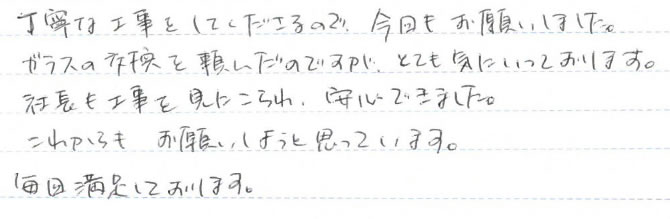 丁寧な工事をしてくださるので、今回もお願いしました。
ガラスの交換を頼んだのですが、とても気にいっております。
社長も工事を見にこられ、安心できました。
これからも お願いしようと思っています。
毎回満足しております。